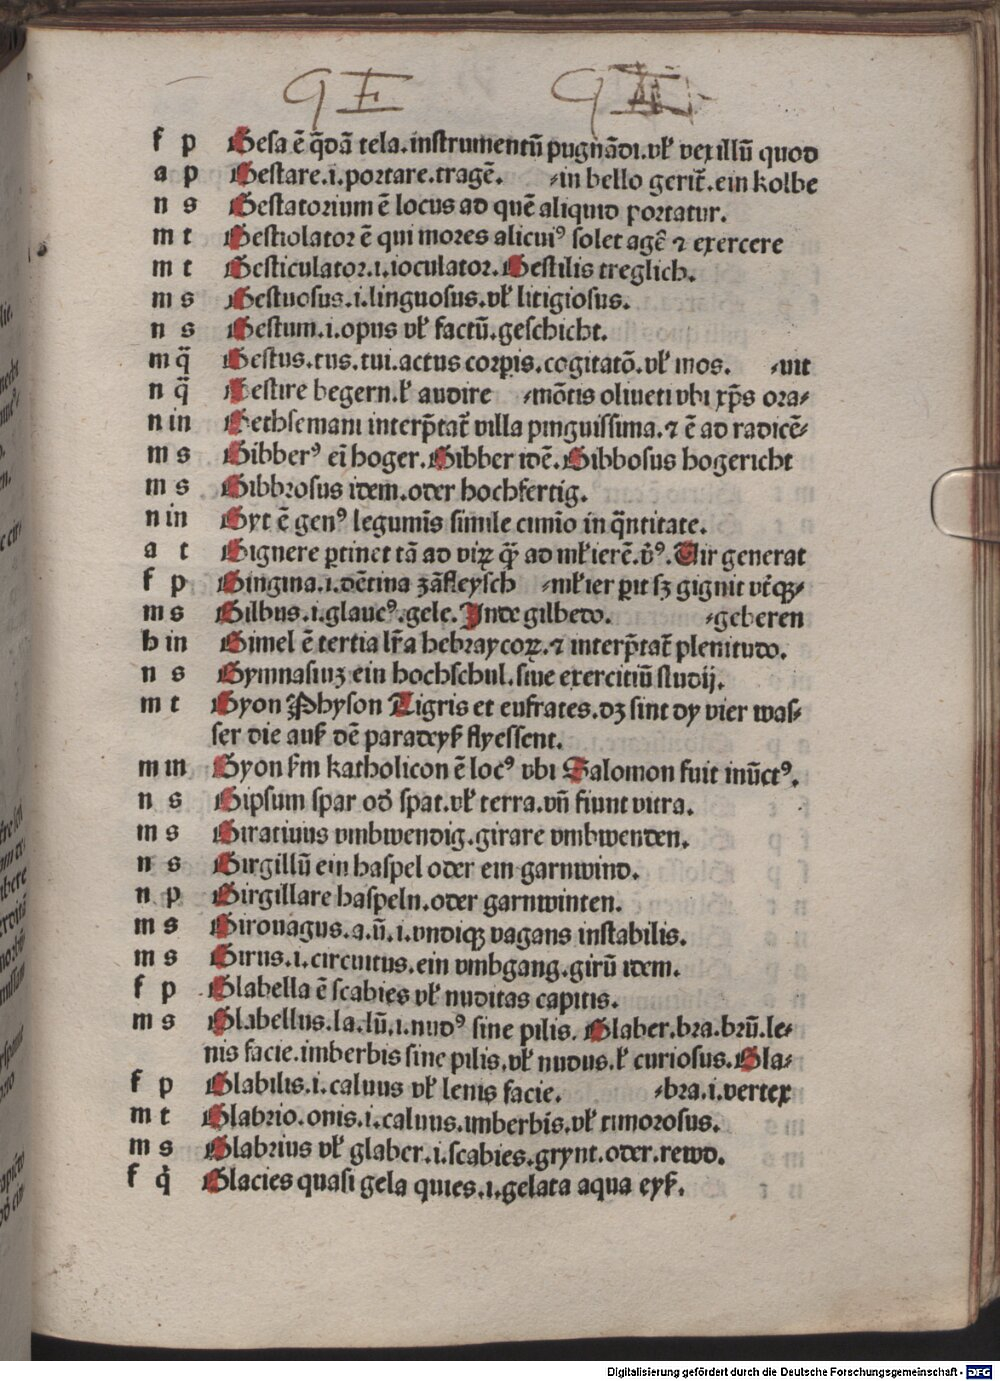 GE GI
f p Gesa ē q̄dā tela.instrumentū pugnādi.vł vexillū quod
a p Gestare.i.portare.tragē. ⸗in bello gerit̄.ein kolbe
n s Gestatorium ē locus ad quē aliquid portatur.
m t Gestiolator ē qui mores alicuiꝰ solet agē ⁊ exercere
m t Gesticulator.i.ioculator.Gestilis treglich.
m s Gestuosus.i.linguosus.vł litigiosus.
n s Gestum.i.opus vł factū.geschicht.
m q̄ Gestus.tus.tui.actus corꝑis.cogitatō.vł mos. ⸗uit
n q̄ Gestire begern.ł audire ⸗mōtis oliueti vbi xp̄s ora⸗
n in Gethsemani interp̄tat̄ villa pinguissima.⁊ ē ad radicē⸗
m s Gibberꝰ ei hoger.Gibber idē.Gibbosus hogericht
m s Gibbrosus idem.oder hochfertig.
n in Gyt ē genꝰ legumīs simile cimīo in q̄ntitate.
a t Gignere ꝑtinet tā ad viꝝ q̄ꝫ ad młierē.v̄ꝰ.Vir generat
f p Gingina.i.dētina zāfleysch ⸗młier ꝑit sꝫ gignit vt̄qꝫ⸗
m s Gilbus.i.glaucꝰ.gele.Inde gilbedo. ⸗geberen
h in Gimel ē tertia lr̄a hebraycoꝝ.⁊ interp̄tat̄ plenitudo.
n s Gymnasiuꝫ ein hochschul.siue exercitiū studij.
m t Gyon Physon Tigris et eufrates.dꝫ sint dy vier was⸗
ser die auß dē paradeyß flyessent.
m in Gyon ẜm katholicon ē locꝰ vbi Salomon fuit inūctꝰ.
n s Gipsum spar od̄ spat.vł terra.vn̄ fiunt vitra.
m s Giratiuus vmbwendig.girare vmbwenden.
n s Girgillū ein haspel oder ein garnwind.
n p Girgillare haspeln.oder garnwinten.
m s Girouagus.a.ū.i.vndiqꝫ vagans instabilis.
m s Girus.i.circuitus.ein vmbgang.girū idem.
f p Glabella ē scabies vł nuditas capitis.
m s Glabellus.la.lū.i.nudꝰ sine pilis. Glaber.bra.brū.le⸗
nis facie.imberbis sine pilis.vł nudus.ł curiosus.Gla⸗
f p Glabilis.i.caluus vł lenis facie. ⸗bra.i.vertex
m t Glabrio.onis.i.caluus.imberbis.vł timorosus.
m s Glabrius vł glaber.i.scabies.grynt.oder.rewd.
f q̇ Glacies quasi gela quies.i.gelata aqua eyß.
Digitalisierung gefördert durch die Deutsche Forschungsgemeinschaft - DFG